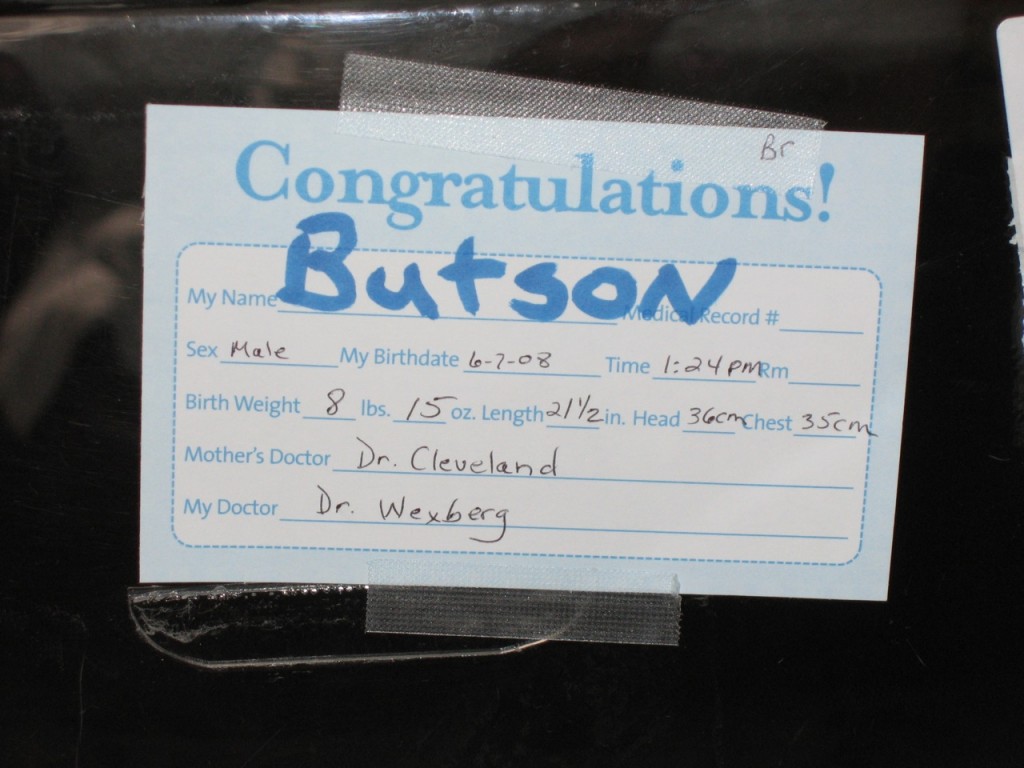 Br
Congratulations!
My Name Butson Medical Record #
Sex Male My Birthdate 6-7-08 Time 1:24 pm Rm
Birth Weight 8 lbs. 15 oz. Length 21 1/2 in. Head 36cm Chest 35cm
Mother's Doctor Dr. Cleveland
My Doctor Dr. Wexberg